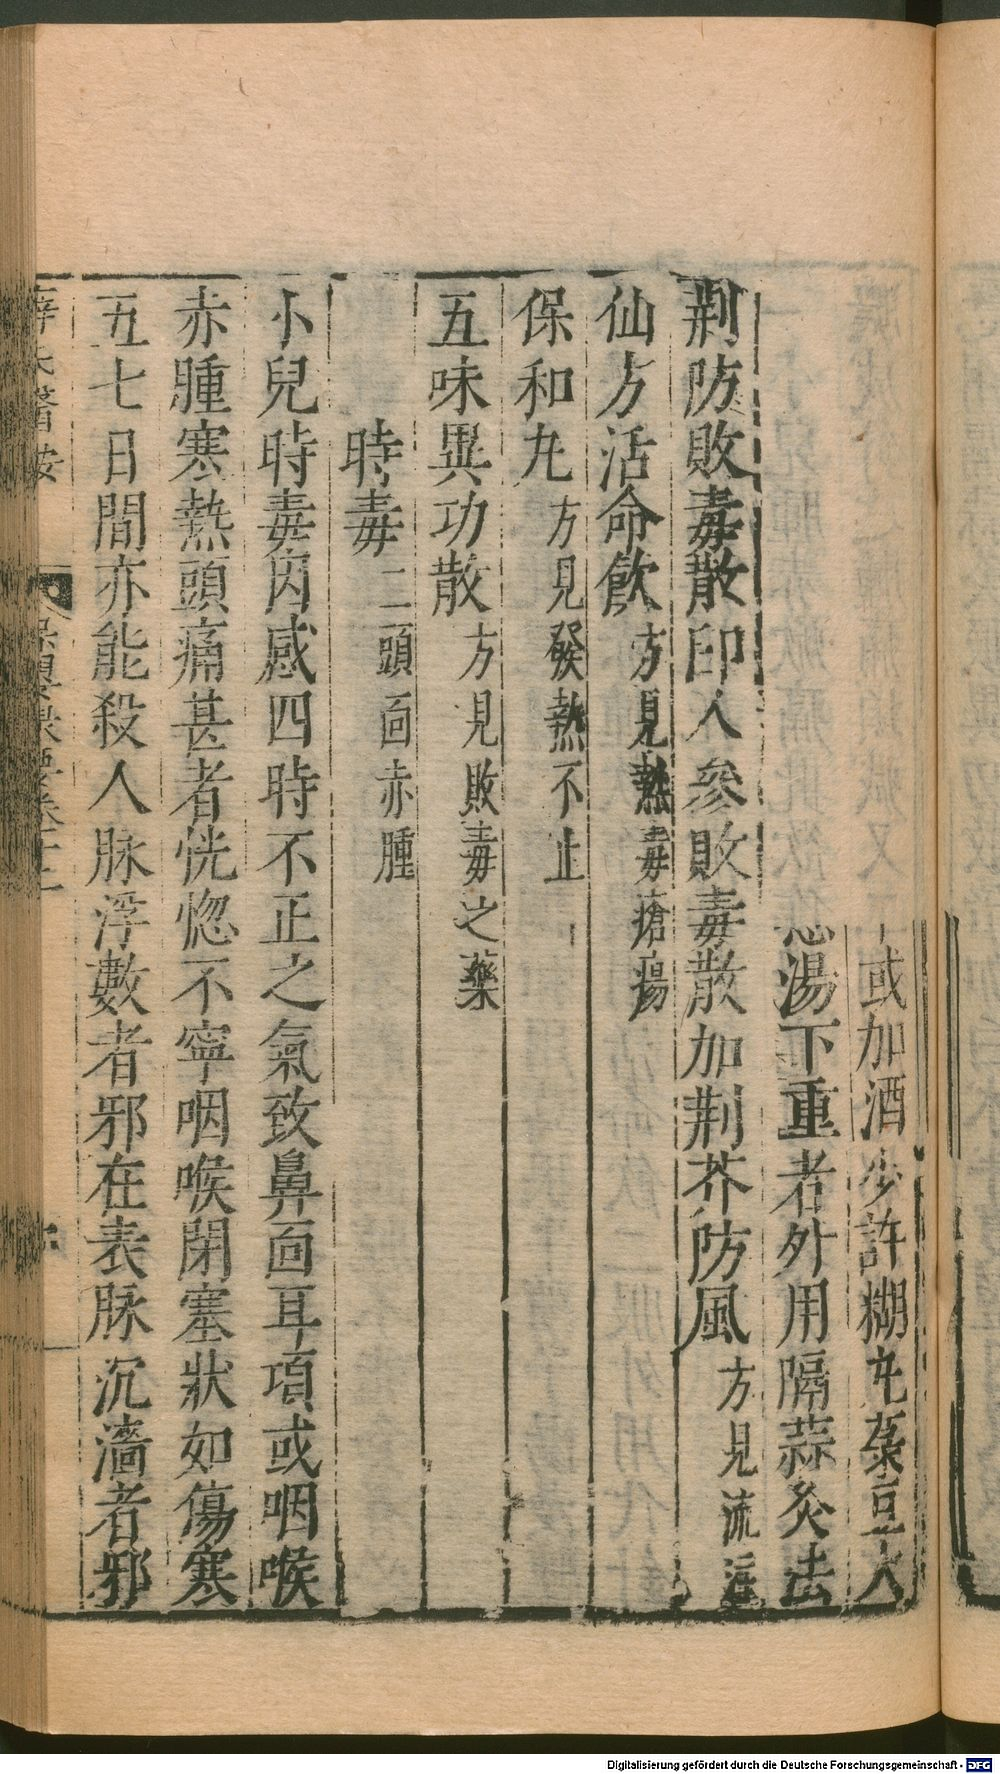 或加酒少許糊丸菉豆大
湯下重者外用隔蒜灸法
荆防敗毒散印人參敗毒散加荆芥防風方見流注
仙方活命飲方見熱毒瘡瘍
保和丸方見發熱不止
五味異功散方見敗毒之藥
時毒二頭面赤腫
小兒時毒因感四時不正之氣致鼻面耳項或咽喉
赤腫寒熱頭痛甚者恍惚不寧咽喉閉塞狀如傷寒
五七日間亦能殺人脉浮數者邪在表脉沉濇者邪
Digitalisierung gefördert durch die Deutsche Forschungsgemeinschaft - DFG